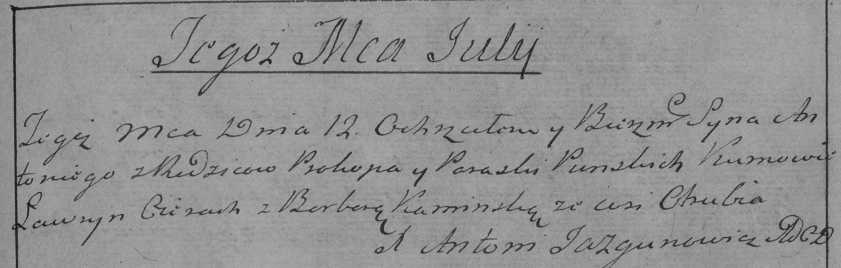 Tegoż Mca July
Tegoż mca Dnia 12. Ochrzciłem y Bierzm Syna An
toniego z Rodzicow Prokopa y Paraski Punskich Kumowie
Ławryn Cierach z Barbarą Kaminską ze wsi Chubia
X Antoni Jazgunowicz